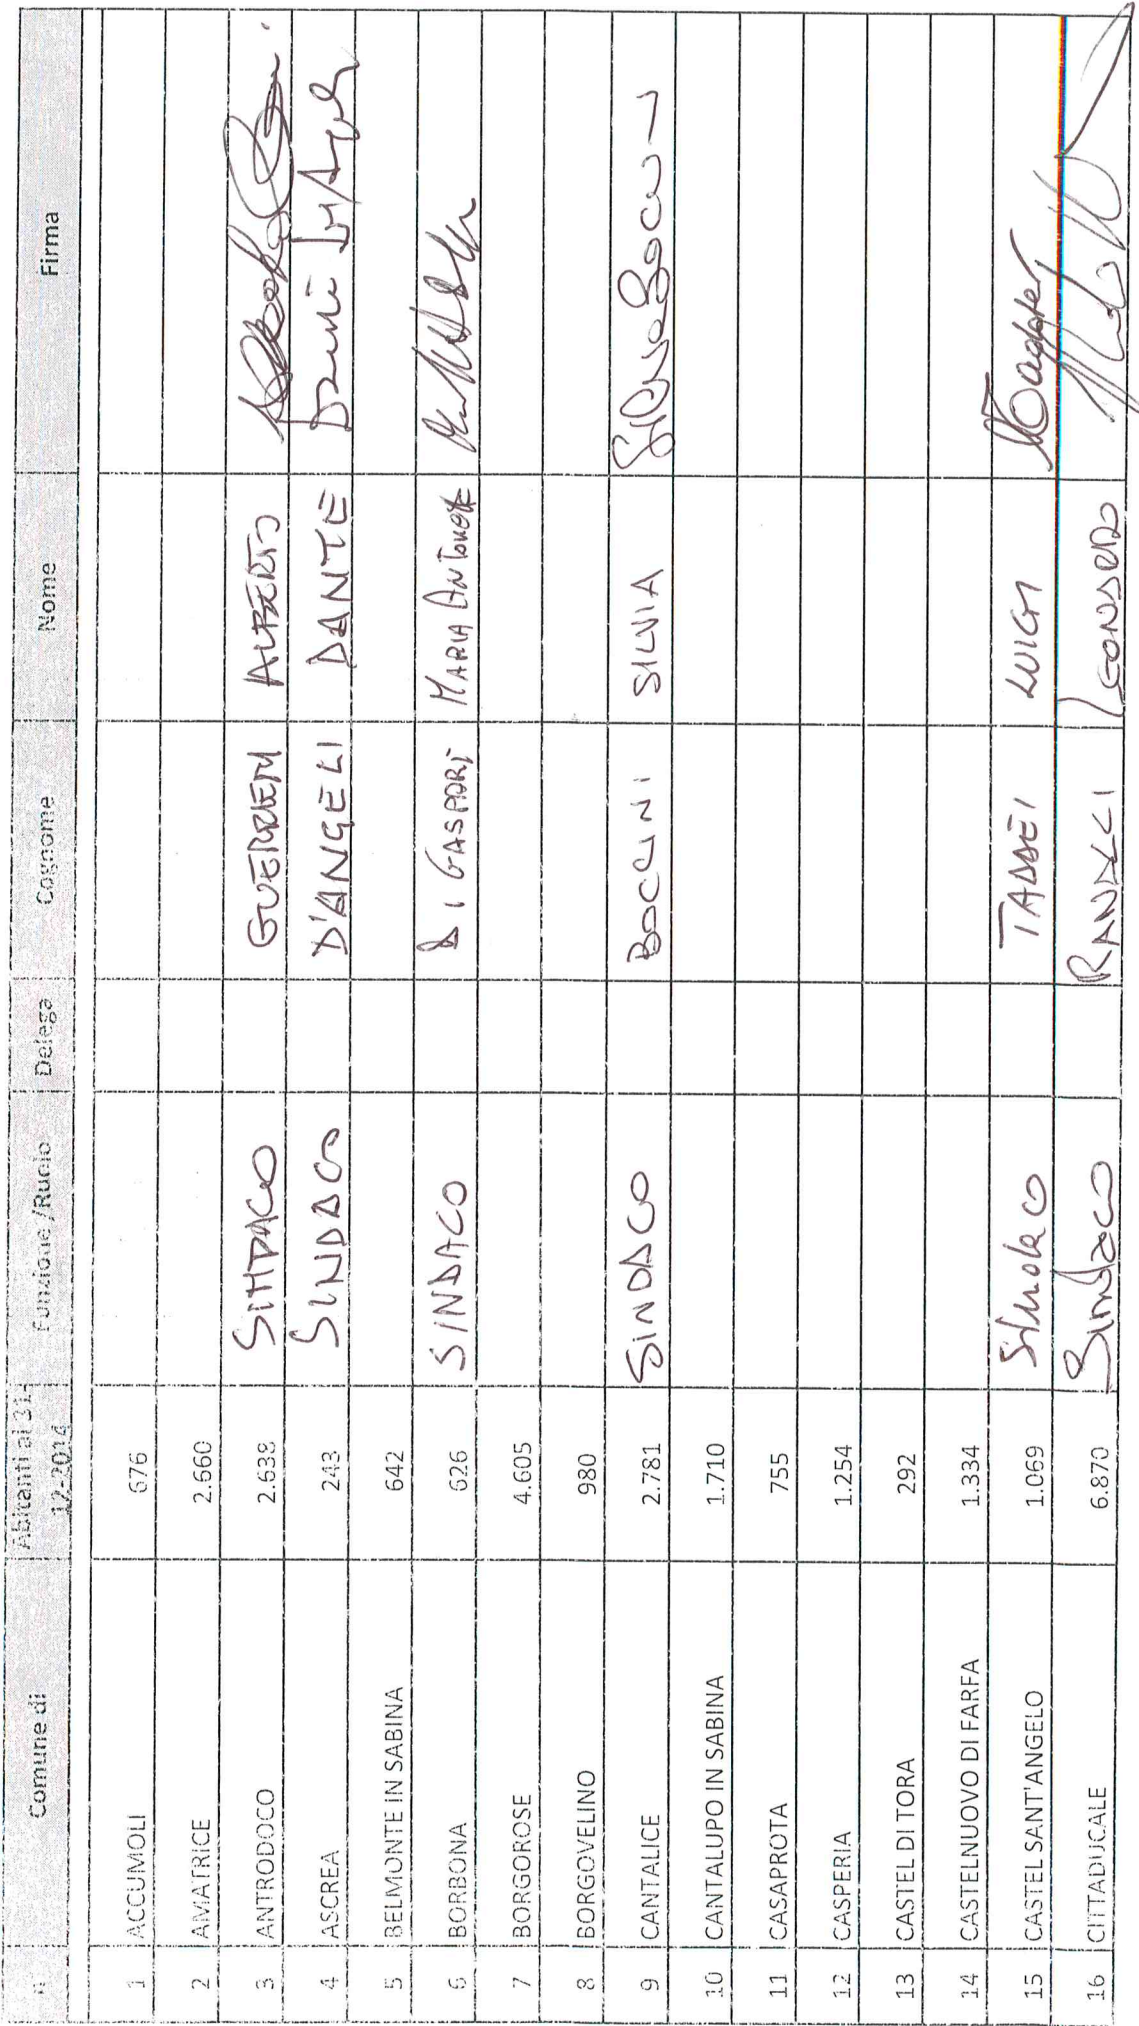 n Comune di Abitanti al 31-12-2014 Funzione/Ruolo Delega Cognome Nome Firma
1 ACCUMOLI 676
2 AMATRICE 2.660
3 ANTRODOCO 2.638 SINDACO GUERRIERI ALBERTO
4 ASCREA 243 SINDACO D'ANGELI DANTE Dante D'Angeli
5 BELMONTE IN SABINA 642
6 BORBONA 626 SINDACO DI GASPARI MARIA ANTONIETTA
7 BORGOROSE 4.605
8 BORGOVELINO 980
9 CANTALICE 2.781 SINDACO BOCCINI SILVIA Silvia Boccini
10 CANTALUPO IN SABINA 1.710
11 CASAPROTA 755
12 CASPERIA 1.254
13 CASTEL DI TORA 292
14 CASTELNUOVO DI FARFA 1.334
15 CASTEL SANT'ANGELO 1.069 Sindaco TADDEI LUIGI
16 CITTADUCALE 6.870 Sindaco RANALLI LEONARDO